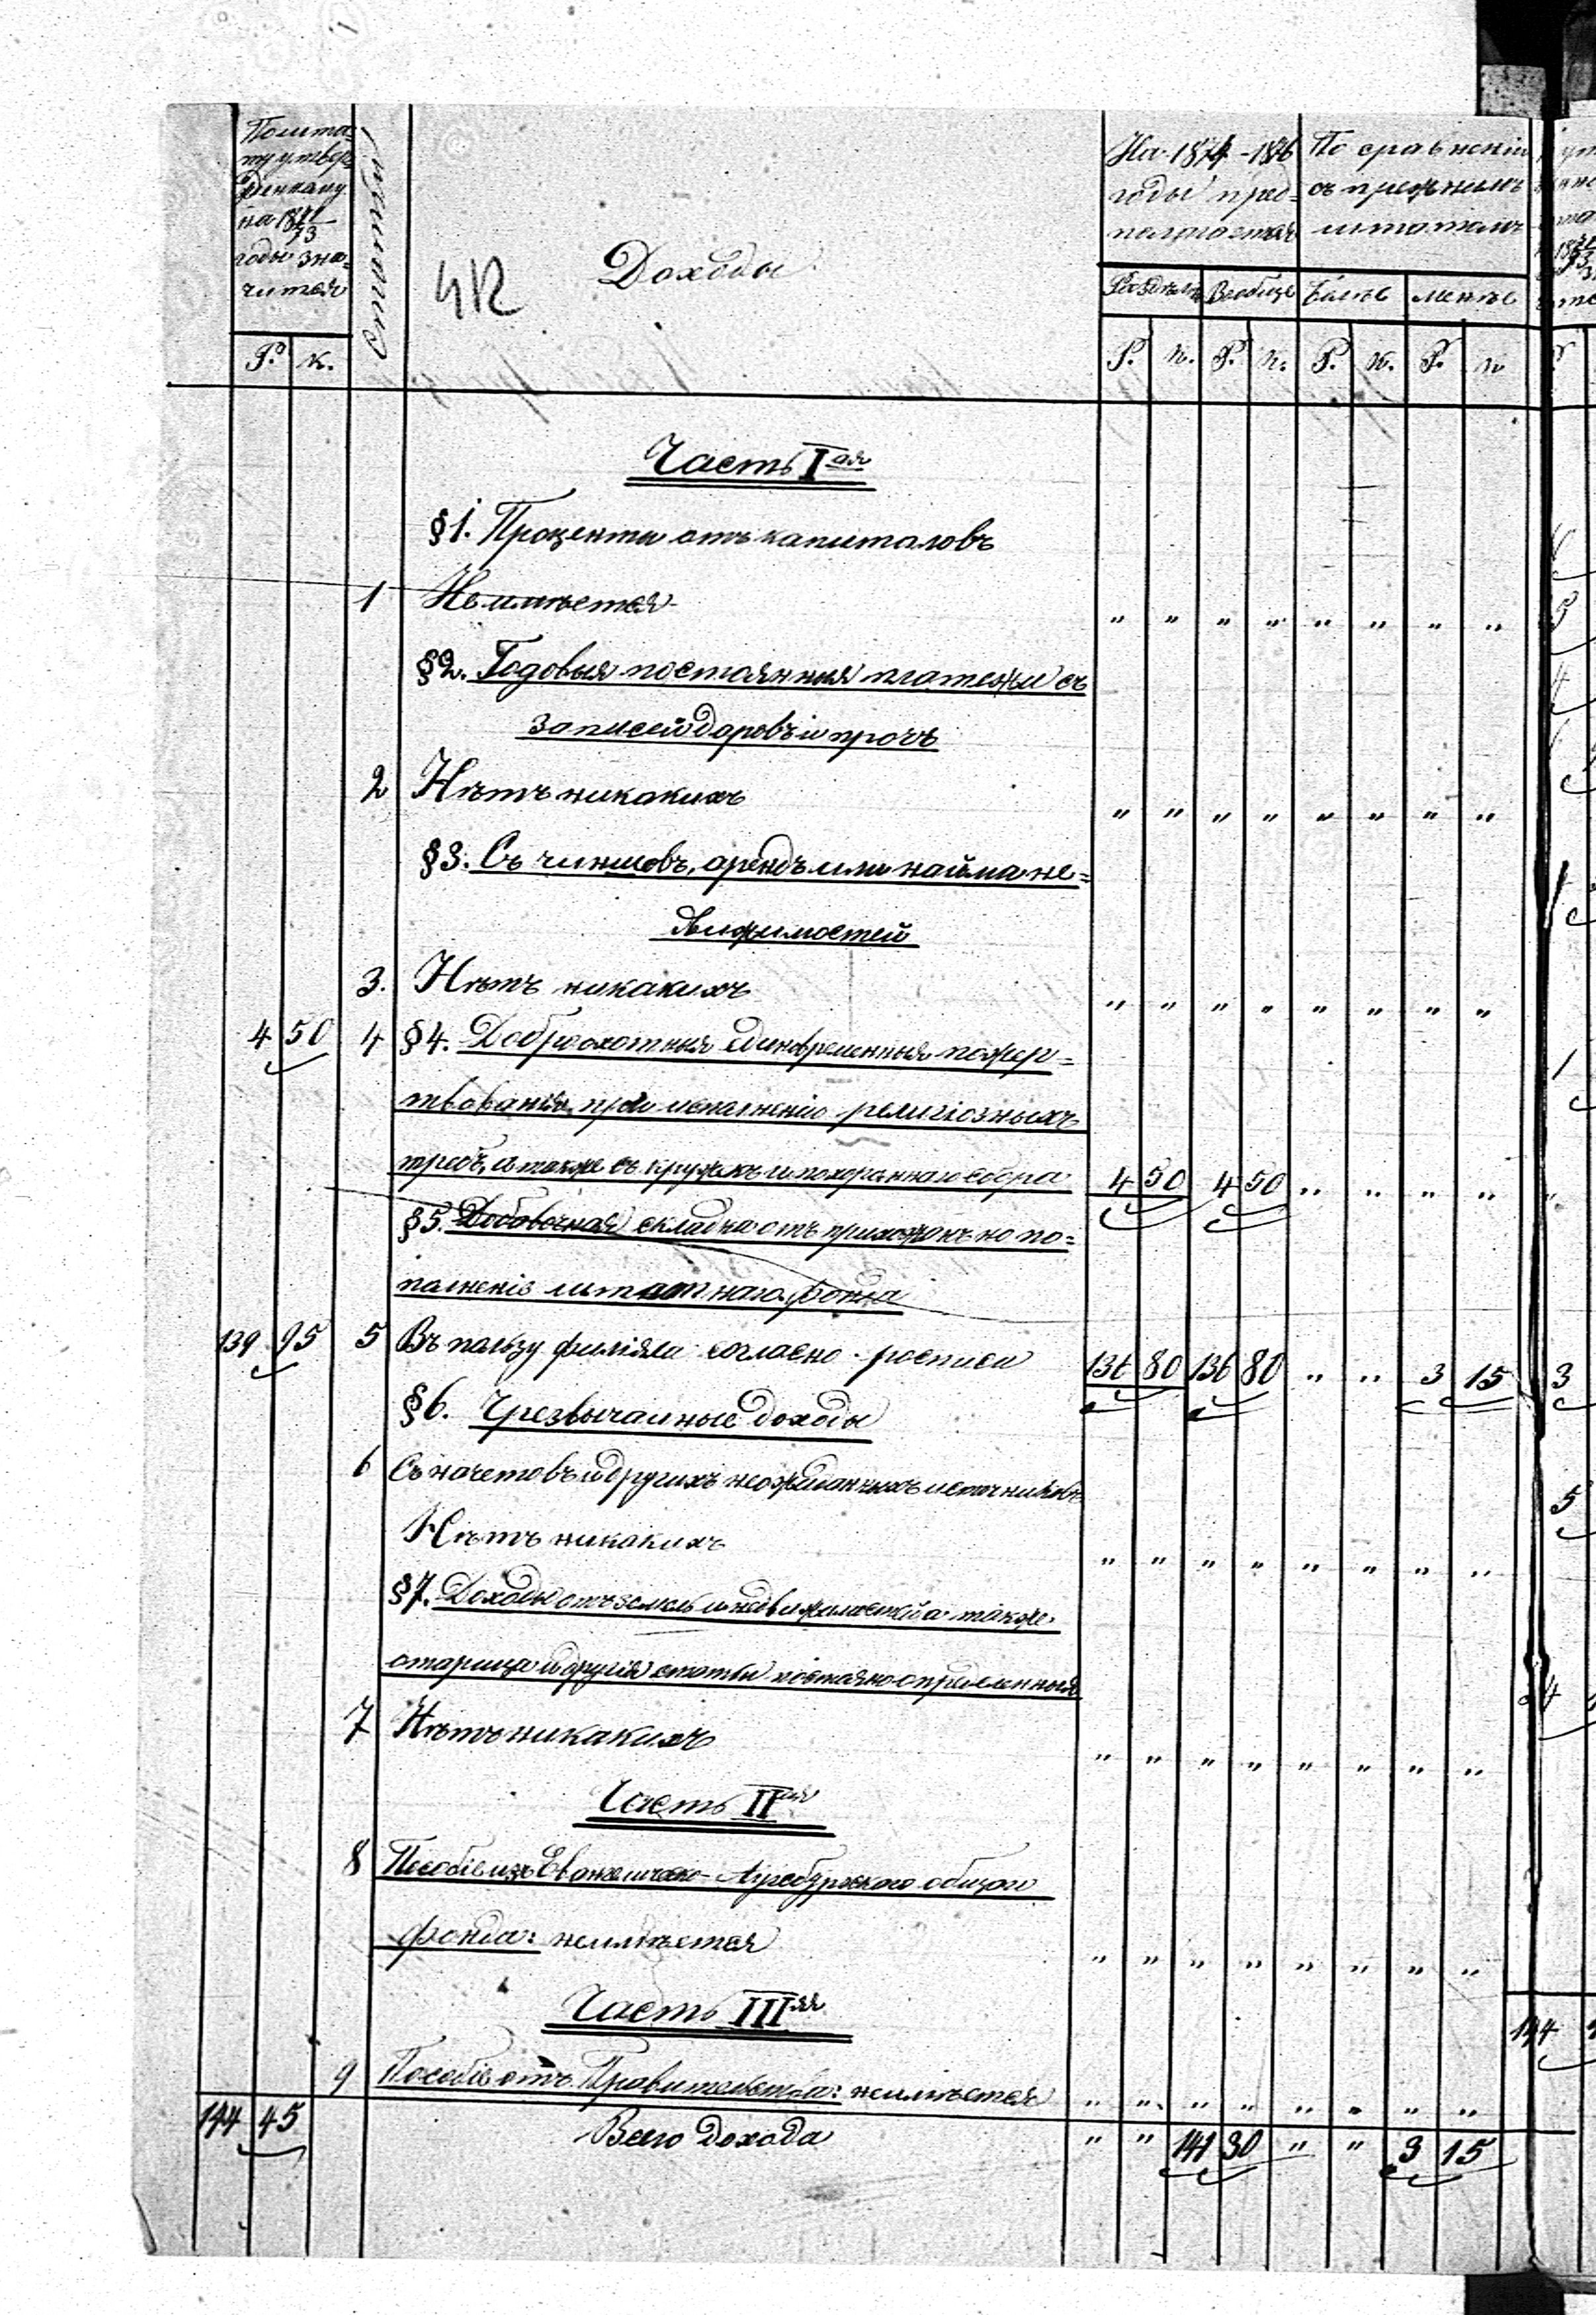 По шта-
ту утвер-
жденному
на 1871/73
годы зна-
чится
Р. к.
Позиціи
412
Доходы
На 1874-1876
годы пред-
полагается
По сравненію
съ прежнимъ
штатомъ
Вообще Болѣе менѣе
Р. к. Р. к. Р. к. Р. к.
Часть Iая
§1. Проценты отъ капиталовъ
1 Неимѣется " " " " " " " "
§2. Годовыя постоянныя платежи съ
записей даровъ и прочъ
2 Нѣтъ никакихъ " " " " " " " "
§3. Съ чиншовъ, арендъ или найма не-
движимостей
3. Нѣтъ никакихъ " " " " " " " "
4 50 4 §4. Доброохотныя единовременныя пожер-
твованія при исполненіи религіозныхъ
требъ, а также съ кружекъ и похороннаго сбора 4 50 4 50 " " " "
§5. Добавочная складка отъ прихожанъ на по-
полненіе штатнаго фонда
139 95 5 Въ пользу филіяла согласно росписи 136 80 136 80 " " 3 15
§6. Чрезвычайные доходы
6 Съ начетовъ и другихъ неожиданныхъ источниковъ
Нѣтъ никакихъ " " " " " " " "
§7. Доходы отъ земель и недвижимостей а также
и другія статьи
7 Нѣтъ никакихъ " " " " " " " "
Часть IIая
8 Пособіе изъ Евангелическо-Аугсбургскаго общаго
фонда: неимѣется " " " " " " " "
Часть IIIяя
9 Пособіе отъ Правительства: неимѣется " " " " " " " "
144 45 Всего дохода " " 141 30 " " 3 15